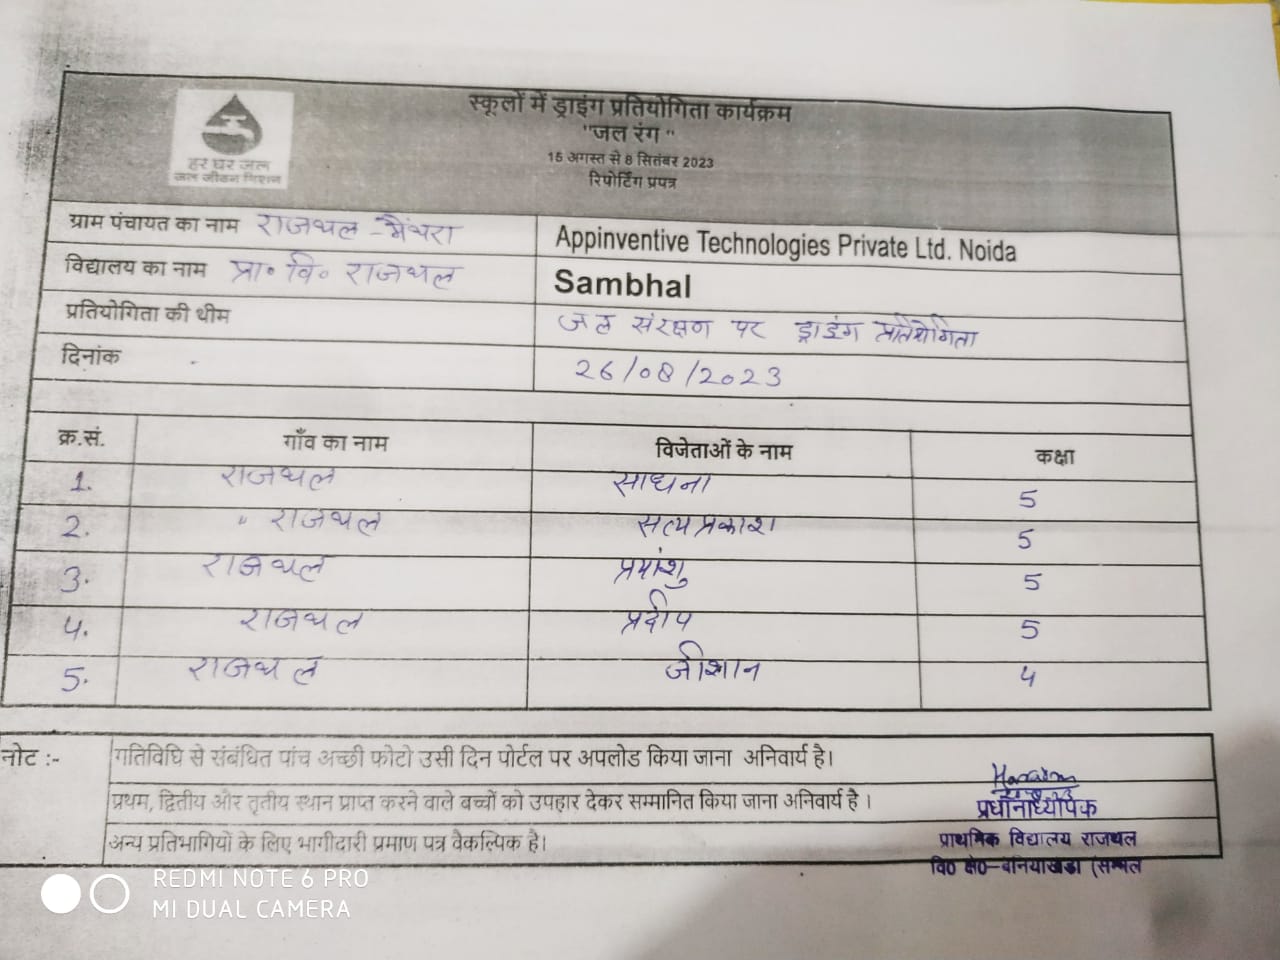 हर घर जल
जल जीवन मिशन
स्कूलों में ड्राइंग प्रतियोगिता कार्यक्रम
"जल रंग "
15 अगस्त से 8 सितंबर 2023
रिपोर्टिंग प्रपत्र
ग्राम पंचायत का नाम राजथल - मैंथरा
Appinventive Technologies Private Ltd. Noida
विद्यालय का नाम प्रा० वि० राजथल
Sambhal
प्रतियोगिता की थीम जल संरक्षण पर ड्राइंग प्रतियोगिता
दिनांक 26/08/2023
क्र.सं. गाँव का नाम विजेताओं के नाम कक्षा
1. राजथल साधना 5
2. राजथल सत्य प्रकाश 5
3. राजथल 5
4. राजथल प्रदीप 5
5. राजथल जीशान 4
नोट :- गतिविधि से संबंधित पांच अच्छी फोटो उसी दिन पोर्टल पर अपलोड किया जाना अनिवार्य है।
प्रथम, द्वितीय और तृतीय स्थान प्राप्त करने वाले बच्चों को उपहार देकर सम्मानित किया जाना अनिवार्य है ।
अन्य प्रतिभागियों के लिए भागीदारी प्रमाण पत्र वैकल्पिक है।
प्रधानाध्यापक
प्राथमिक विद्यालय राजथल
वि० क्षे०-बनियाखेडा (सम्भल
REDMI NOTE 6 PRO
MI DUAL CAMERA